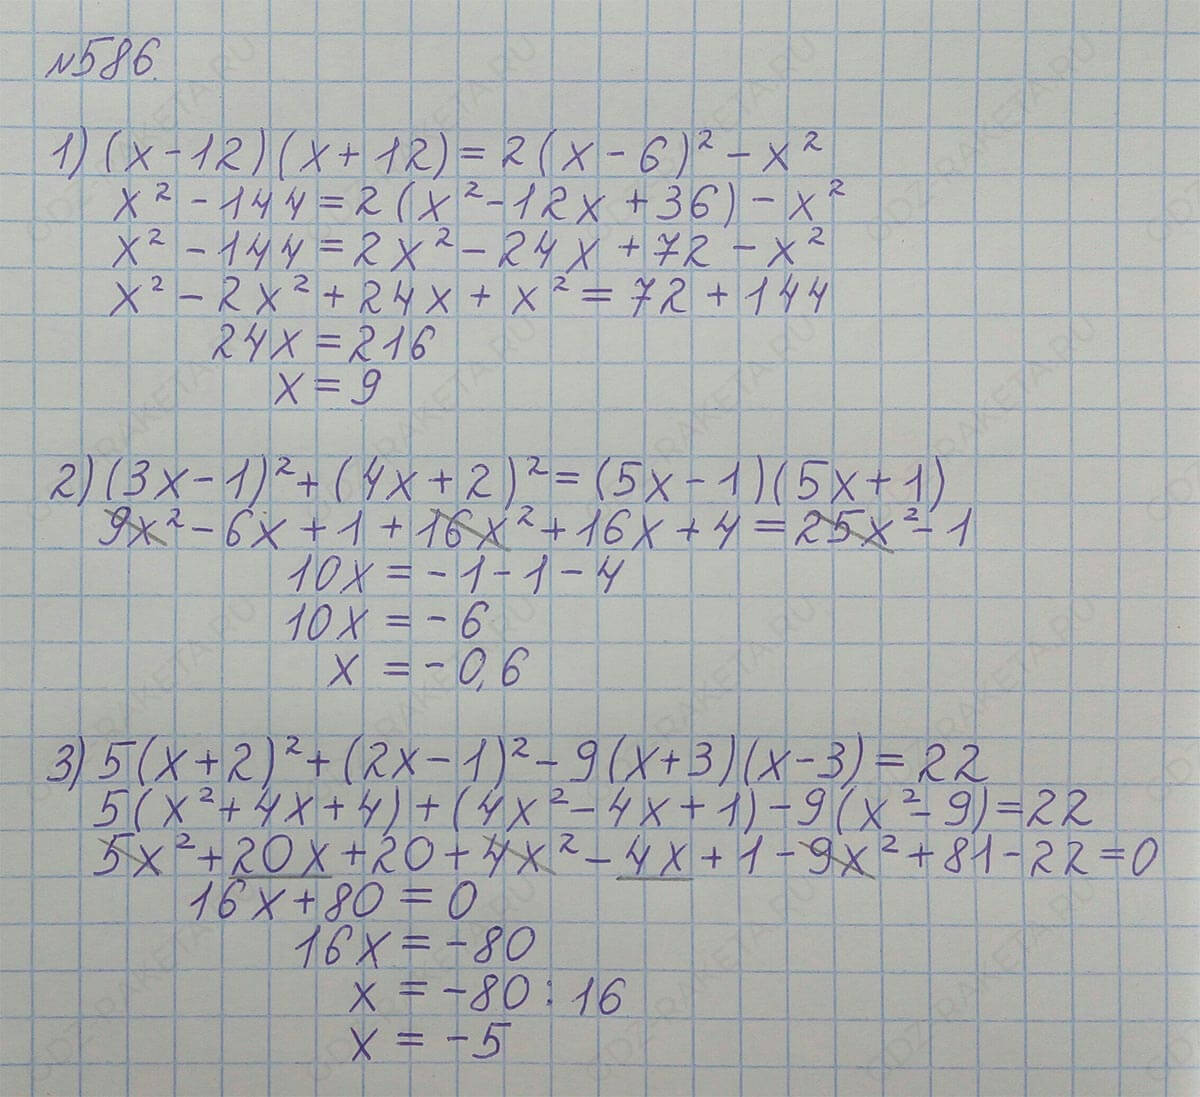 №586.
1) (x-12)(x+12)=2(x-6)²-x²
x²-144=2(x²-12x+36)-x²
x²-144=2x²-24x+72-x²
x²-2x²+24x+x²=72+144
24x=216
x=9
2) (3x-1)²+(4x+2)²=(5x-1)(5x+1)
9x²-6x+1+16x²+16x+4=25x²-1
10x=-1-1-4
10x=-6
x=-0,6
3) 5(x+2)²+(2x-1)²-9(x+3)(x-3)=22
5(x²+4x+4)+(4x²-4x+1)-9(x²-9)=22
5x²+20x+20+4x²-4x+1-9x²+81-22=0
16x+80=0
16x=-80
x=-80:16
x=-5
GDZ-RAKETA.RU